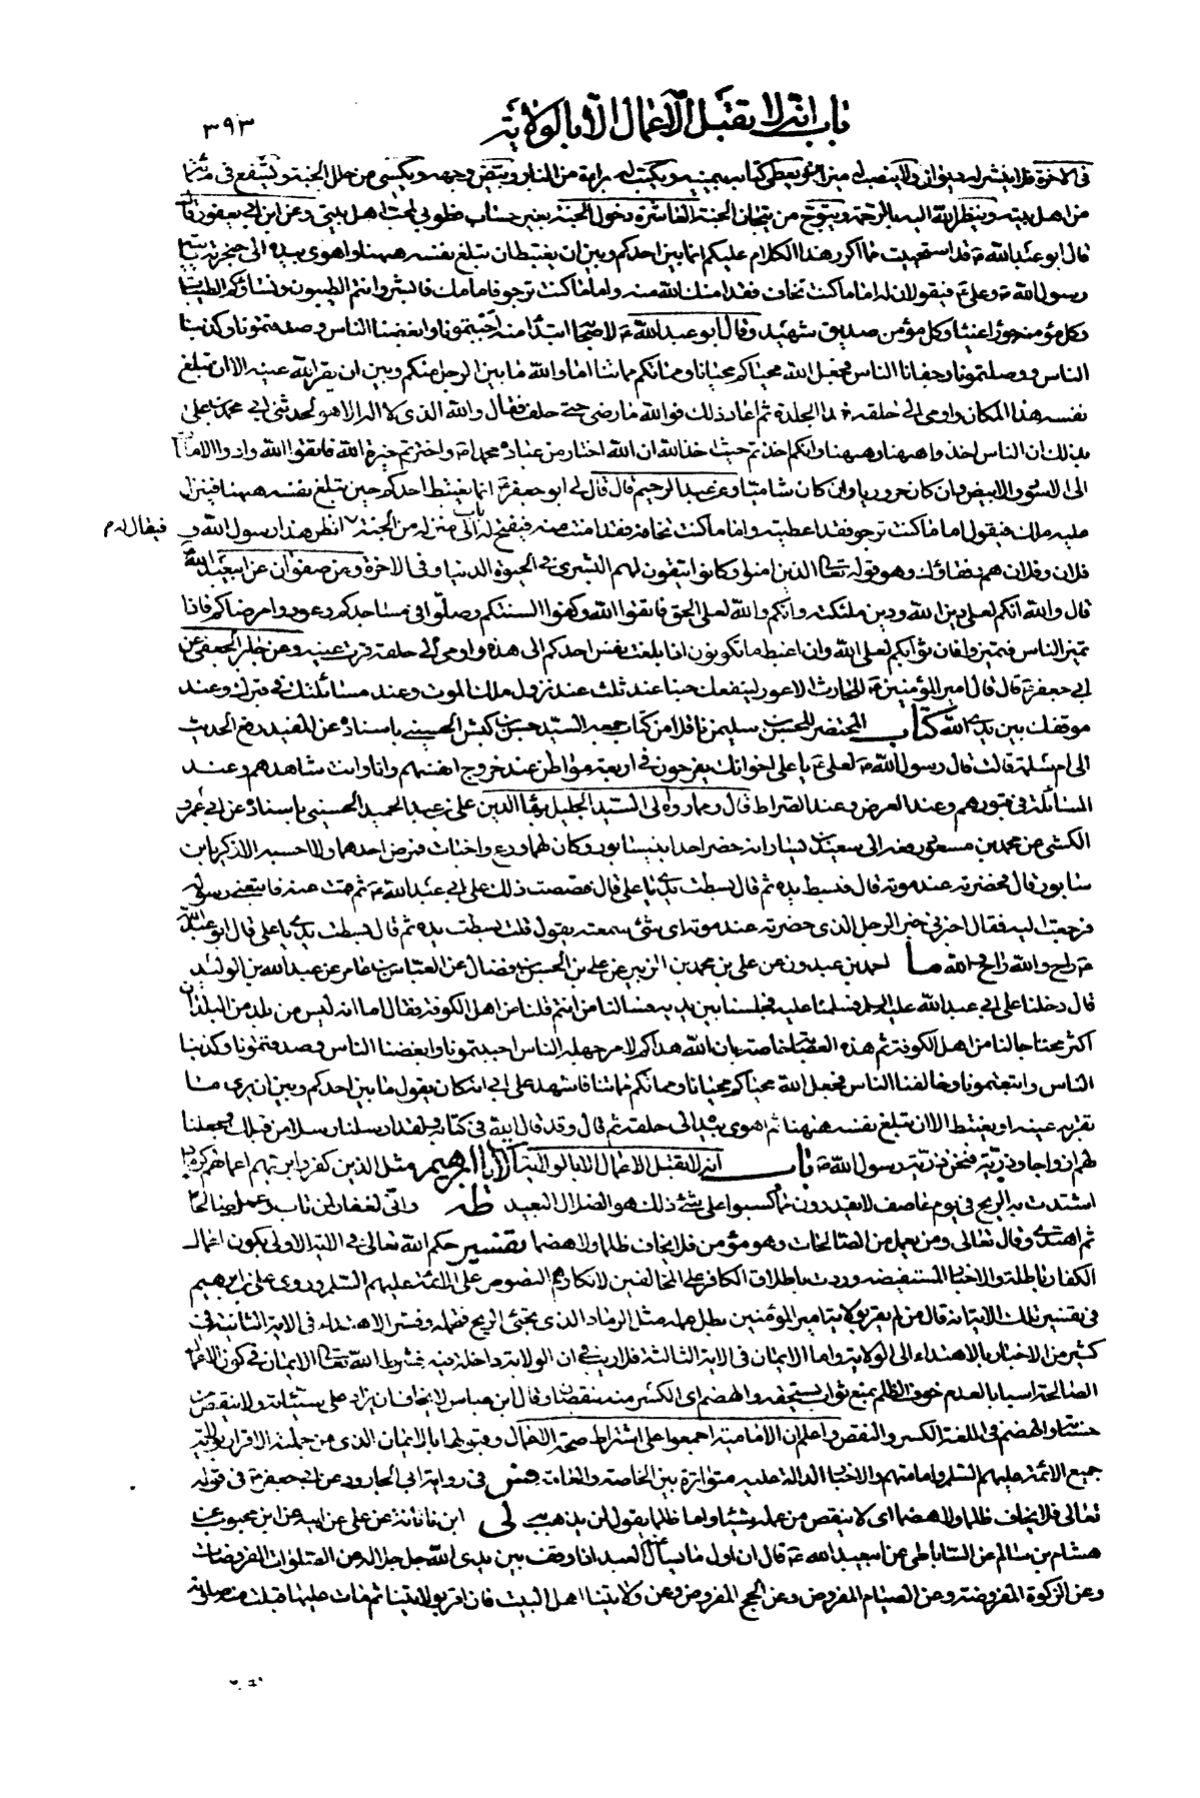 باب انه لا يقبل الاعمال الا بالولاية
٣٩٣
في الاخرة فلا ينشر له ديوان ولا ينصب له ميزان ويعطى كتابه بيمينه ويكتب له براءة من النار ويبيض وجهه ويكسى من حلل الجنة ويشفع في مائة
من اهل بيته وينظر الله اليه بالرحمة ويتوج من تيجان الجنة العاشرة دخول الجنة بغير حساب فطوبى لمحب اهل بيتي وعن ابن ابي يعفور قال
قال ابو عبد الله ع قد استحييت مما اكرر هذا الكلام عليكم انما بين احدكم وبين ان يغتبط ان تبلغ نفسه ههنا واهوى بيده الى حنجرته ياتيه
رسول الله ص وعلى ع فيقولان له اما ما كنت تخاف فقد امنك الله منه واما ما كنت ترجو فامامك فابشروا انتم الطيبون ونساؤكم الطيبات
وكل مؤمنة حوراء عيناء وكل مؤمن صديق شهيد وقال ابو عبد الله ع لاصحابه ابتداء منه احببتمونا وابغضنا الناس وصدقتمونا وكذبنا
الناس ووصلتمونا وجفانا الناس فجعل الله محياكم محيانا ومماتكم مماتنا اما والله ما بين الرجل منكم وبين ان يقر الله عينه الا ان تبلغ
نفسه هذا المكان واومى الى حلقه فمد الجلدة ثم اعاد ذلك فوالله ما رضى حتى حلف فقال والله الذي لا اله الا هو لحدثني ابي محمد بن علي
بذلك ان الناس اخذوا ههنا وههنا وانكم اخذتم حيث اخذ الله ان الله اختار من عباده محمدا ص واخترتم خيرة الله فاتقوا الله وادوا الامانات
الى الاسود والابيض وان كان حروريا وان كان شاميا وعن عبد الرحيم قال قال لي ابو جعفر ع انما يغتبط احدكم حين تبلغ نفسه ههنا فينزل
عليه ملك فيقول اما ما كنت ترجو فقد اعطيته واما ما كنت تخافه فقد امنت منه فيفتح له باب الى منزله من الجنة انظر هذا رسول الله و
فيقال له م
فلان وفلان هم رفقاؤك وهو قوله تعالى الذين امنوا وكانوا يتقون لهم البشرى في الحيوة الدنيا وفي الاخرة وعن صفوان عن ابي عبد الله
قال والله انكم لعلى دين الله ودين ملئكته وانكم والله لعلى الحق فاتقوا الله وكفوا السنتكم وصلوا في مساجدكم وعودوا مرضاكم فاذا
تميز الناس فتميزوا فان ثوابكم لعلى الله وان اغبط ما تكونون اذا بلغت نفس احدكم الى هذه واومى الى حلقه قرت عينه وعن جابر الجعفي عن
ابي جعفر ع قال قال امير المؤمنين ع للحارث الاعور لينفعنك حبنا عند ثلث عند نزول ملك الموت وعند مسائلتك في قبرك وعند
موقفك بين يدى الله كتاب المحتضر للحسن بن سليمن نقلا من كتاب جمعه السيد حسن بن كبش الحسيني باسناده عن المفيد رفع الحديث
الى ام سلمة قالت قال رسول الله ص لعلي ع يا علي اخوانك يفرحون في اربعة مواطن عند خروج انفسهم وانا وانت شاهدهم وعند
المسائلة في قبورهم وعند العرض وعند الصراط قال ومما رواه لي السيد الجليل بهاء الدين علي بن عبد الحميد الحسيني باسناده عن ابي عمرو
الكشي عن محمد بن مسعود رفعه الى سعيد بن يسار انه حضر احد ابني سابور وكان لهما ورع واخبات فمرض احدهما ولا احسبه الا زكريا بن
سابور قال فحضرته عند موته قال فبسط يده ثم قال بسطت يدي يا علي قال فقصصت ذلك على ابي عبد الله ع ثم قمت عنه فاتبعني رسوله
فرجعت اليه فقال اخبرني خبر الرجل الذي حضرته عند موته اى شئ سمعته يقول قلت بسطت يده ثم قال بسطت يدي يا علي قال ابو عبد الله
ع راه والله راه والله ما احمد بن عبدون عن علي بن محمد بن الزبير عن علي بن الحسن بن فضال عن العباس بن عامر عن عبد الله بن الوليد
قال دخلنا على ابي عبد الله عليه السلم فسلمنا عليه فجلسنا بين يديه فسالنا من انتم قلنا من اهل الكوفة فقال اما انه ليس من بلد من البلدان
اكثر محبا لنا من اهل الكوفة ثم هذه العصابة خاصة ان الله هداكم لامر جهله الناس احببتمونا وابغضنا الناس وصدقتمونا وكذبنا
الناس واتبعتمونا وخالفنا الناس فجعل الله محياكم محيانا ومماتكم مماتنا فاشهد على ابي انه كان يقول ما بين احدكم وبين ان يرى ما
تقر به عينه او يغتبط الا ان تبلغ نفسه هنهنا ثم اهوى بيده الى حلقه ثم قال وقد قال الله في كتابه ولقد ارسلنا رسلا من قبلك وجعلنا
لهم ازواجا وذرية فنحن ذرية رسول الله ص باب انه لا يقبل الاعمال الا بالولاية الايات ابرهيم مثل الذين كفروا بربهم اعمالهم كرماد
اشتدت به الريح في يوم عاصف لا يقدرون مما كسبوا على شئ ذلك هو الضلال البعيد طه واني لغفار لمن تاب وعمل صالحا
ثم اهتدى وقال تعالى ومن يعمل من الصالحات وهو مؤمن فلا يخاف ظلما ولا هضما تفسير حكم الله تعالى في الاية الاولى بكون اعمال
الكفار باطلة والاخبار المستفيضة وردت باطلاق الكافر على المخالفين لانكارهم النصوص على الائمة عليهم السلم وروى علي بن ابرهيم
في تفسير تلك الاية انه قال من لم يقر بولاية امير المؤمنين بطل عمله مثل الرماد الذي تجئ الريح فتحمله وفسر الاهتداء في الاية الثانية في
كثير من الاخبار بالاهتداء الى الولاية واما الايمان في الاية الثالثة فلا ريب في ان الولاية داخلة فيه فشرط الله تعالى الايمان في كون الاعمال
الصالحة اسبابا لعدم خوف الظلم بمنع ثواب يستحقه والهضم اى الكسر منه بنقصان وقال ابن عباس لا يخاف ان يزاد على سيئاته ولا ينقص من
حسناته والهضم في اللغة الكسر والنقص واعلم ان الامامية اجمعوا على اشتراط صحة الاعمال وقبولها بالايمان الذي من جملته الاقرار بولاية
جميع الائمة عليهم السلم وامامتهم والاخبار الدالة عليه متواترة بين الخاصة والعامة فس في رواية ابي الجارود عن ابي جعفر ع في قوله
تعالى فلا يخاف ظلما ولا هضما اى لا ينقص من عمله شيئا واما ظلما يقول لن يذهب به لى ابن ناتانة عن علي عن ابيه عن ابن محبوب عن
هشام بن سالم عن الساباطي عن ابي عبد الله ع قال ان اول ما يسأل عنه العبد اذا وقف بين يدى الله جل جلاله عن الصلوات المفروضات
وعن الزكوة المفروضة وعن الصيام المفروض وعن الحج المفروض وعن ولايتنا اهل البيت فان اقر بولايتنا ثم مات عليها قبلت منه صلوته